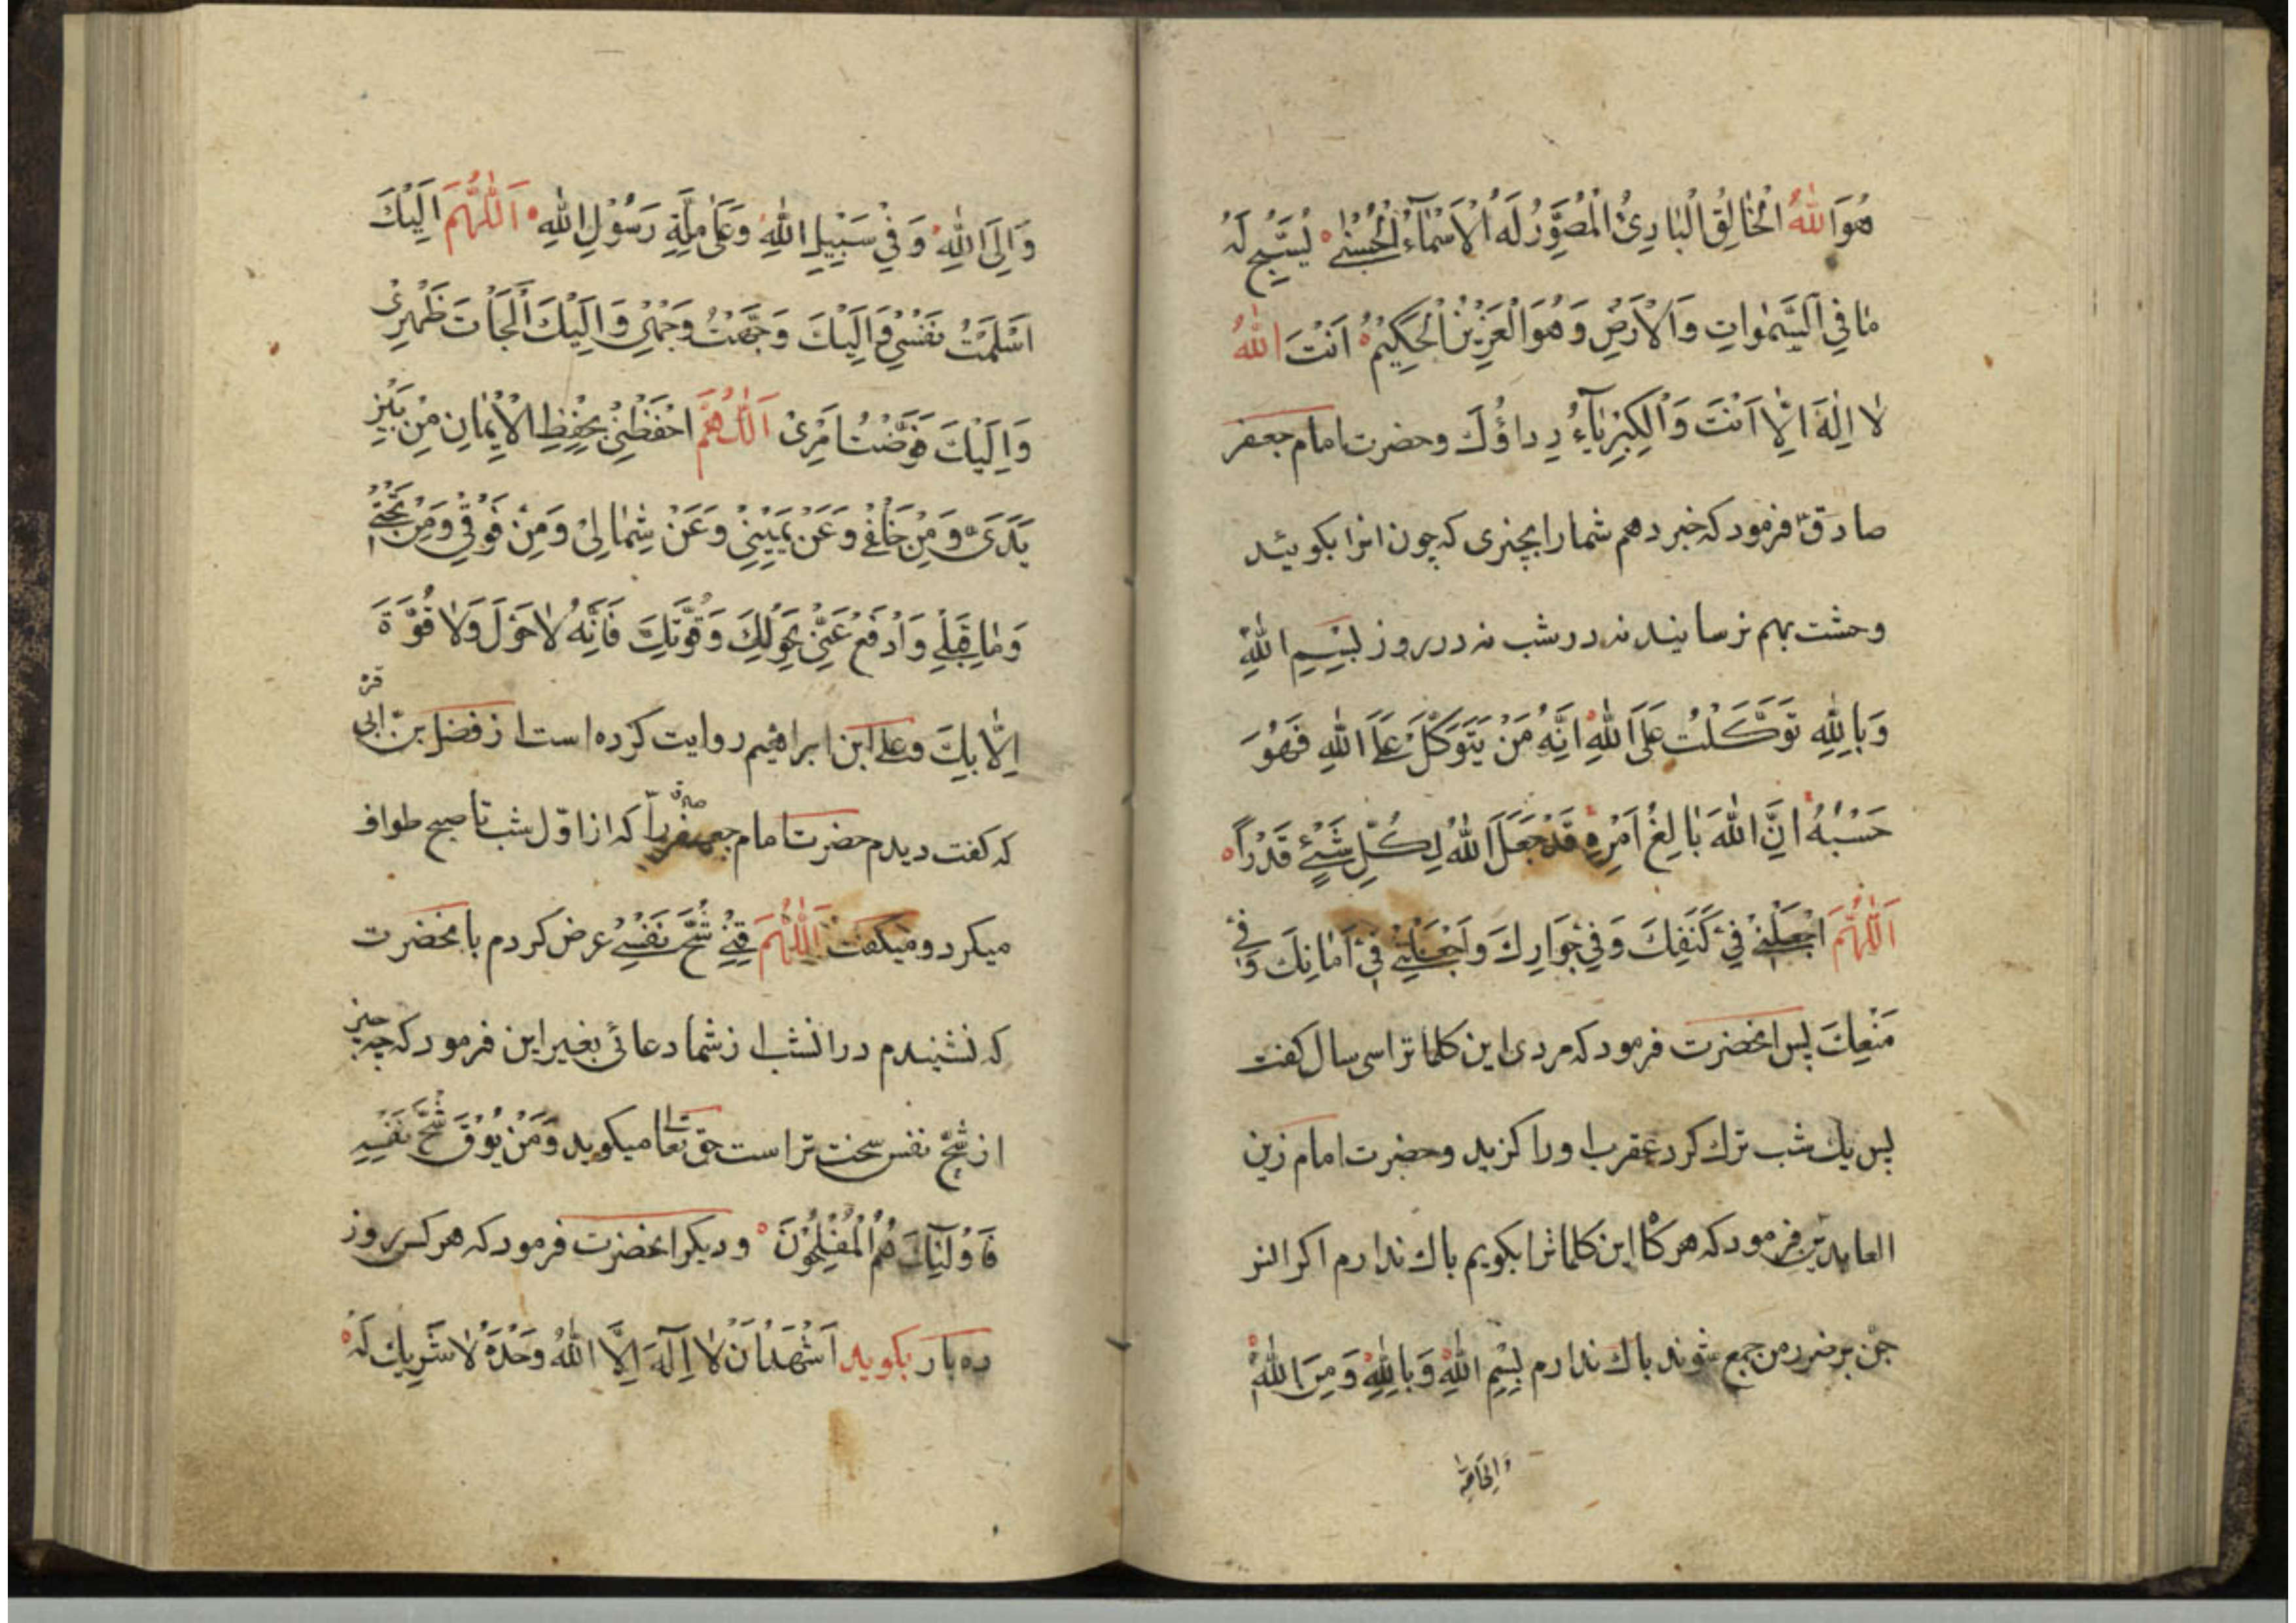 هُوَ اللهُ الْخَالِقُ الْبَارِئُ الْمُصَوِّرُ لَهُ الْاَسْمَآءُ الْحُسْنٰى يُسَبِّحُ لَهُ
مٰا فِي السَّمٰوَاتِ وَالْاَرْضِ وَهُوَ الْعَزِيْزُ الْحَكِيْمُ اَنْتَ اللهُ
لٰا اِلٰهَ اِلّٰا اَنْتَ وَالْكِبْرِيٰآءُ رِداؤُكَ وحضرت امام جعفر
صادق فرمود كه خبر دهم شما را بچیزی كه چون انرا بكوئید
وحشت بهم نرسانید نه در شب نه در روز بِسْمِ اللهِ
وَبِاللهِ تَوَكَّلْتُ عَلَى اللهِ اِنَّهُ مَنْ يَتَوَكَّلْ عَلَى اللهِ فَهُوَ
حَسْبُهُ اِنَّ اللهَ بٰالِغُ اَمْرِهِ قَدْ جَعَلَ اللهُ لِكُلِّ شَيْئٍ قَدْراً
اَللّٰهُمَّ اجْعَلْنِيْ فِيْ كَنَفِكَ وَفِيْ جِوَارِكَ وَاجْعَلْنِيْ فِيْ اَمٰانِكَ وَفِيْ
مَنْعِكَ پس انحضرت فرمود كه مردی این كلماترا سی سال كفت
پس یك شب ترك كرد عقرب او را كزید وحضرت امام زین
العابدین فرمود كه هركاه این كلماترا بكویم باك ندارم اكر انس
جن بر ضرر من جمع شوند باك ندارم بِسْمِ اللهِ وَبِاللهِ وَمِنَ اللهِ
وَاِلَى اللهِ
وَاِلَى اللهِ وَفِيْ سَبِيْلِ اللهِ وَعَلٰى مِلَّةِ رَسُوْلِ اللهِ اَللّٰهُمَّ اِلَيْكَ
اَسْلَمْتُ نَفْسِيْ وَاِلَيْكَ وَجَّهْتُ وَجْهِيْ وَاِلَيْكَ اَلْجَاْتُ ظَهْرِيْ
وَاِلَيْكَ فَوَّضْتُ اَمْرِيْ اَللّٰهُمَّ احْفَظْنِيْ بِحِفْظِ الْاِيْمٰانِ مِنْ بَيْنِ
يَدَيَّ وَمِنْ خَلْفِيْ وَعَنْ يَمِيْنِيْ وَعَنْ شِمٰالِيْ وَمِنْ فَوْقِيْ وَمِنْ تَحْتِيْ
وَمٰا قِبَلِيْ وَادْفَعْ عَنِّيْ بِحَوْلِكَ وَقُوَّتِكَ فَاِنَّهُ لٰا حَوْلَ وَلٰا قُوَّةَ
اِلّٰا بِكَ وعلی ابن ابراهیم روایت كرده است از فضل بن ابی
قره
كه كفت دیدم حضرت امام جعفر را كه از اوّل شب تا صبح طواف
میكرد و میكفت اَللّٰهُمَّ قِنِيْ شُحَّ نَفْسِيْ عرض كردم بانحضرت
كه نشنیدم در انشب از شما دعائی بغیر این فرمود كه چه چیز
از شحّ نفس سخت تر است حق تعالی میكوید وَمَنْ يُوْقَ شُحَّ نَفْسِهِ
فَاُوْلٰئِكَ هُمُ الْمُفْلِحُوْنَ و دیكر انحضرت فرمود كه هركس روز
ده بار بكوید اَشْهَدُ اَنْ لٰا اِلٰهَ اِلَّا اللهُ وَحْدَهُ لٰا شَرِيكَ لَهُ